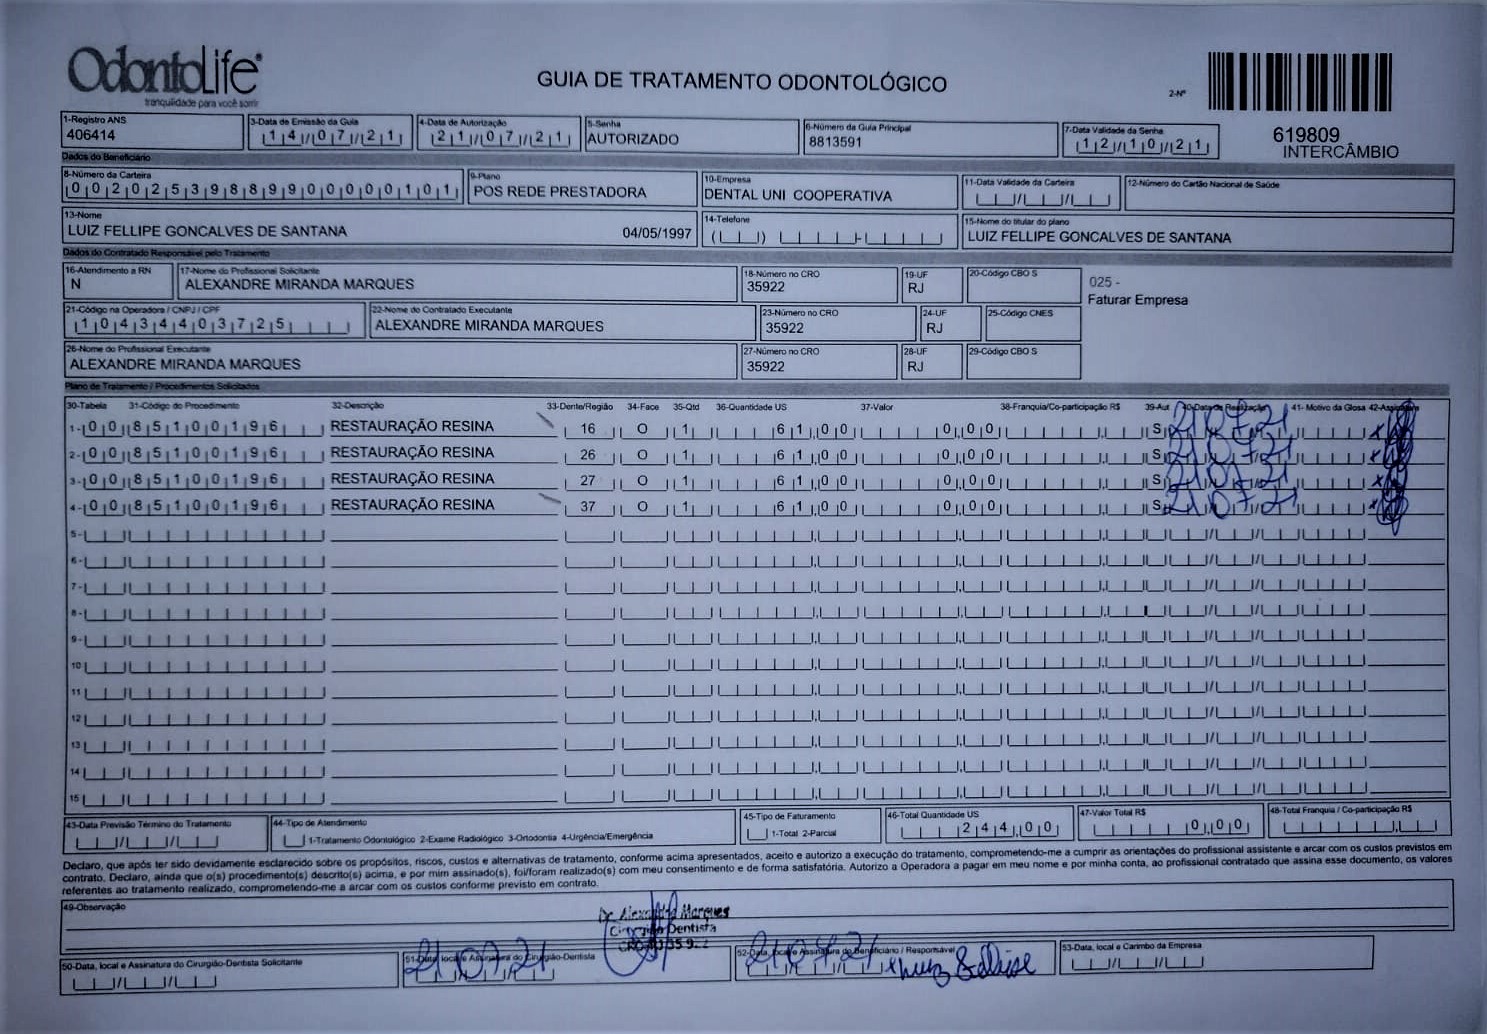 OdontoLife®
tranquilidade para você sorrir
GUIA DE TRATAMENTO ODONTOLÓGICO
2-Nº
619809
INTERCÂMBIO
1-Registro ANS
406414
3-Data de Emissão da Guia
14/07/21
4-Data de Autorização
21/07/21
5-Senha
AUTORIZADO
6-Número da Guia Principal
8813591
7-Data Validade da Senha
12/10/21
Dados do Beneficiário
8-Número da Carteira
00202539889900000101
9-Plano
POS REDE PRESTADORA
10-Empresa
DENTAL UNI COOPERATIVA
11-Data Validade da Carteira
12-Número do Cartão Nacional de Saúde
13-Nome
LUIZ FELLIPE GONCALVES DE SANTANA 04/05/1997
14-Telefone
15-Nome do titular do plano
LUIZ FELLIPE GONCALVES DE SANTANA
Dados do Contratado Responsável pelo Tratamento
16-Atendimento a RN
N
17-Nome do Profissional Solicitante
ALEXANDRE MIRANDA MARQUES
18-Número no CRO
35922
19-UF
RJ
20-Código CBO S
025 -
Faturar Empresa
21-Código na Operadora / CNPJ / CPF
10434403725
22-Nome do Contratado Executante
ALEXANDRE MIRANDA MARQUES
23-Número no CRO
35922
24-UF
RJ
25-Código CNES
26-Nome do Profissional Executante
ALEXANDRE MIRANDA MARQUES
27-Número no CRO
35922
28-UF
RJ
29-Código CBO S
Plano de Tratamento / Procedimentos Solicitados
30-Tabela 31-Código do Procedimento 32-Descrição 33-Dente/Região 34-Face 35-Qtd 36-Quantidade US 37-Valor 38-Franquia/Co-participação R$ 39-Aut 40-Data de Realização 41- Motivo da Glosa 42-Assinatura
1- 00 85100196 RESTAURAÇÃO RESINA 16 O 1 61,00 0,00 S 21 07 21
2- 00 85100196 RESTAURAÇÃO RESINA 26 O 1 61,00 0,00 S 21 07 21
3- 00 85100196 RESTAURAÇÃO RESINA 27 O 1 61,00 0,00 S 21 07 21
4- 00 85100196 RESTAURAÇÃO RESINA 37 O 1 61,00 0,00 S 21 07 21
5-
6-
7-
8-
9-
10
11
12
13
14
15
43-Data Previsão Término do Tratamento
44-Tipo de Atendimento
1-Tratamento Odontológico 2-Exame Radiológico 3-Ortodontia 4-Urgência/Emergência
45-Tipo de Faturamento
1-Total 2-Parcial
46-Total Quantidade US
244,00
47-Valor Total R$
0,00
48-Total Franquia / Co-participação R$
Declaro, que após ter sido devidamente esclarecido sobre os propósitos, riscos, custos e alternativas de tratamento, conforme acima apresentados, aceito e autorizo a execução do tratamento, comprometendo-me a cumprir as orientações do profissional assistente e arcar com os custos previstos em
contrato. Declaro, ainda que o(s) procedimento(s) descrito(s) acima, e por mim assinado(s), foi/foram realizado(s) com meu consentimento e de forma satisfatória. Autorizo a Operadora a pagar em meu nome e por minha conta, ao profissional contratado que assina esse documento, os valores
referentes ao tratamento realizado, comprometendo-me a arcar com os custos conforme previsto em contrato.
49-Observação
Dr. Alexandre Marques
Cirurgião Dentista
50-Data, local e Assinatura do Cirurgião-Dentista Solicitante
51-Data, local e Assinatura do Cirurgião-Dentista
21 07 21
52-Data, local e Assinatura do Beneficiário / Responsável
21 07 21
53-Data, local e Carimbo da Empresa